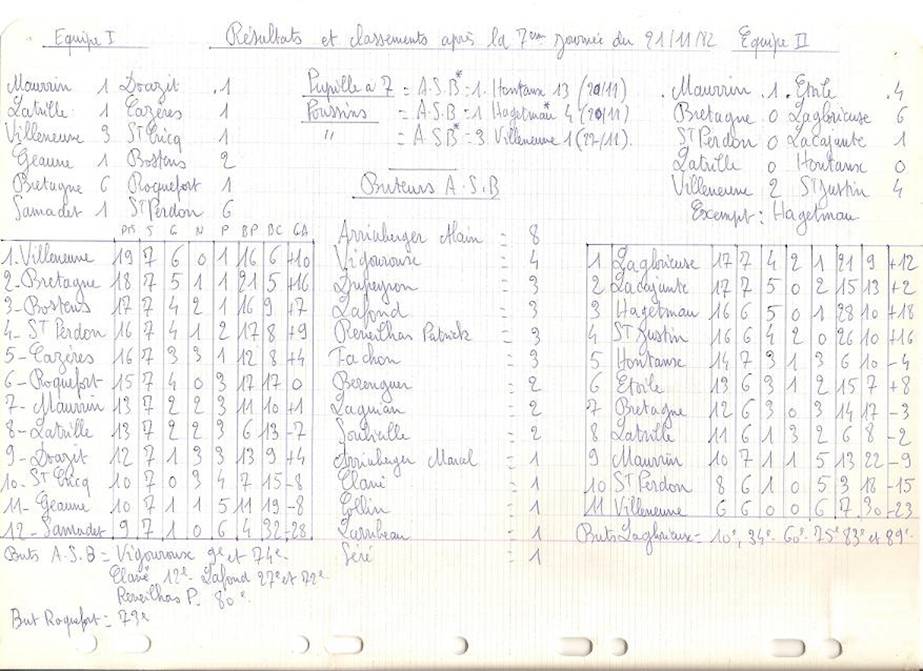 Equipe I Résultats et classements après la 7ème journée du 21/11/82 Equipe II
Maurrin 1 Doazit 1
Latrille 1 Cazères 1
Villeneuve 3 St Cricq 1
Geaune 1 Bostens 2
Bretagne 6 Roquefort 1
Samadet 1 St Perdon 6
Pupille à 7 = A.S.B* = 1. Hontanx 13 (20/11)
Poussins = A.S.B = 1 Hagetmau* 4 (20/11)
" = A.S.B* = 3 Villeneuve 1 (22/11).
Maurrin 1 Etoile 4
Bretagne 0 Laglorieuse 6
St Perdon 0 Lacajunte 1
Latrille 0 Hontanx 0
Villeneuve 2 St Justin 4
Exempt : Hagetmau
Buteurs A.S.B
Pts J G N P BP BC GA
1. Villeneuve 19 7 6 0 1 16 6 +10
2- Bretagne 18 7 5 1 1 21 5 +16
3- Bostens 17 7 4 2 1 16 9 +7
4- St Perdon 16 7 4 1 2 17 8 +9
5- Cazères 16 7 3 3 1 12 8 +4
6- Roquefort 15 7 4 0 3 17 17 0
7- Maurrin 13 7 2 2 3 11 10 +1
8- Latrille 13 7 2 2 3 6 13 -7
9- Doazit 12 7 1 3 3 13 9 +4
10- St Cricq 10 7 0 3 4 7 15 -8
11- Geaune 10 7 1 1 5 11 19 -8
12- Samadet 9 7 1 0 6 4 32 -28
Arrieberger Alain = 8
Vigouroux = 4
Dupeyron = 3
Lafond = 3
Reveilhas Patrick = 3
Fachon = 3
Berenguer = 2
= 2
= 2
Arrieberger Marcel = 1
Clavé = 1
Collin = 1
= 1
Séré = 1
1 Laglorieuse 17 7 4 2 1 21 9 +12
2 Lacajunte 17 7 5 0 2 15 13 +2
3 Hagetmau 16 6 5 0 1 28 10 +18
4 St Justin 16 6 4 2 0 26 10 +16
5 Hontanx 14 7 3 1 3 6 10 -4
6 Etoile 13 6 3 1 2 15 7 +8
7 Bretagne 12 6 3 0 3 14 17 -3
8 Latrille 11 6 1 3 2 6 8 -2
9 Maurrin 10 7 1 1 5 13 22 -9
10 St Perdon 8 6 1 0 5 3 18 -15
11 Villeneuve 6 6 0 0 6 7 30 -23
Buts Laglorieuse = 10e, 34e. 60e. 75e 83e et 89e.
Buts A.S.B = Vigouroux 9e et 74e.
Clavé 12e. Lafond 27e et 72e.
Reveilhas P. 80e.
But Roquefort = 73e